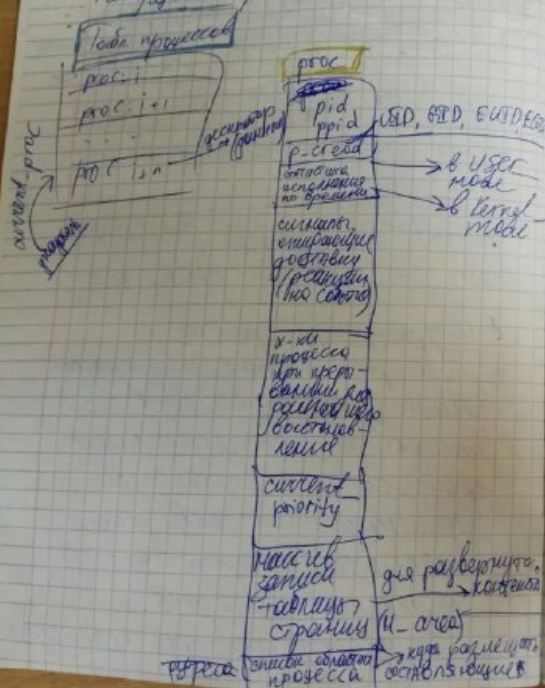 Табл. процессов
proc i
proc i+1
. . .
proc i+n
current_proc
указатель
дескриптор
proc
pid
ppid
p-cred
UID, GID, EUID, EGID
статистика
исполнения
по времени
в user
mode
в kernel
mode
сигналы,
ожидающие
доставки
(реакции
на сигнал)
х-ки
процесса
при преры-
вании для
дальнейшего
восстанов-
ления
current_
priority
массив
записи
таблицы
страниц
для развернут.
контекста
(u_area)
список областей
процесса
куда размещать
составляющие